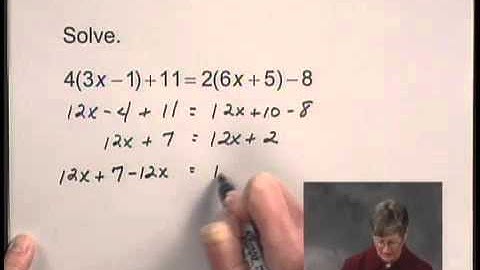 Solve.
4(3x−1)+11=2(6x+5)−8
12x - 4 + 11 = 12x + 10 - 8
12x + 7 = 12x + 2
12x + 7 - 12x = 1